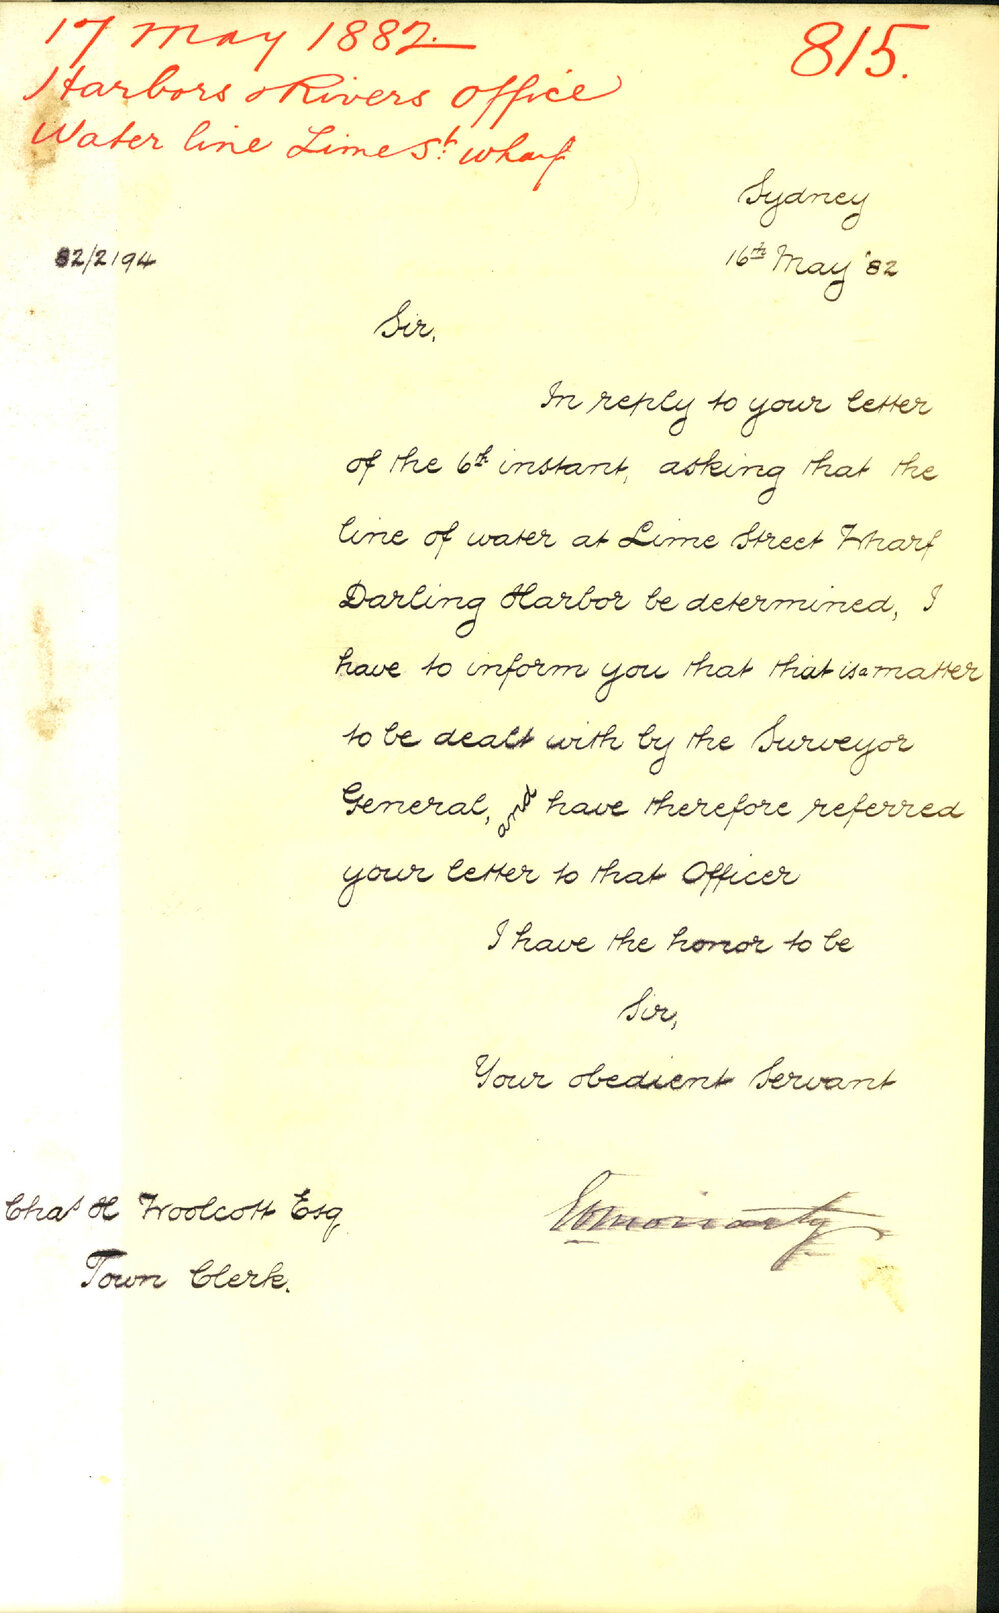 17 May 1882.
815.
Harbors & Rivers Office
Water line Lime St. wharf
Sydney
82/2194
16th May '82
Sir,
In reply to your letter
of the 6th instant, asking that the
line of water at Lime Street Wharf
Darling Harbor be determined, I
have to inform you that that is a matter
to be dealt with by the Surveyor
General, and have therefore referred
your letter to that Officer
I have the honor to be
Sir,
Your obedient Servant
EO Moriarty
Chas H Woolcott Esq
Town Clerk.